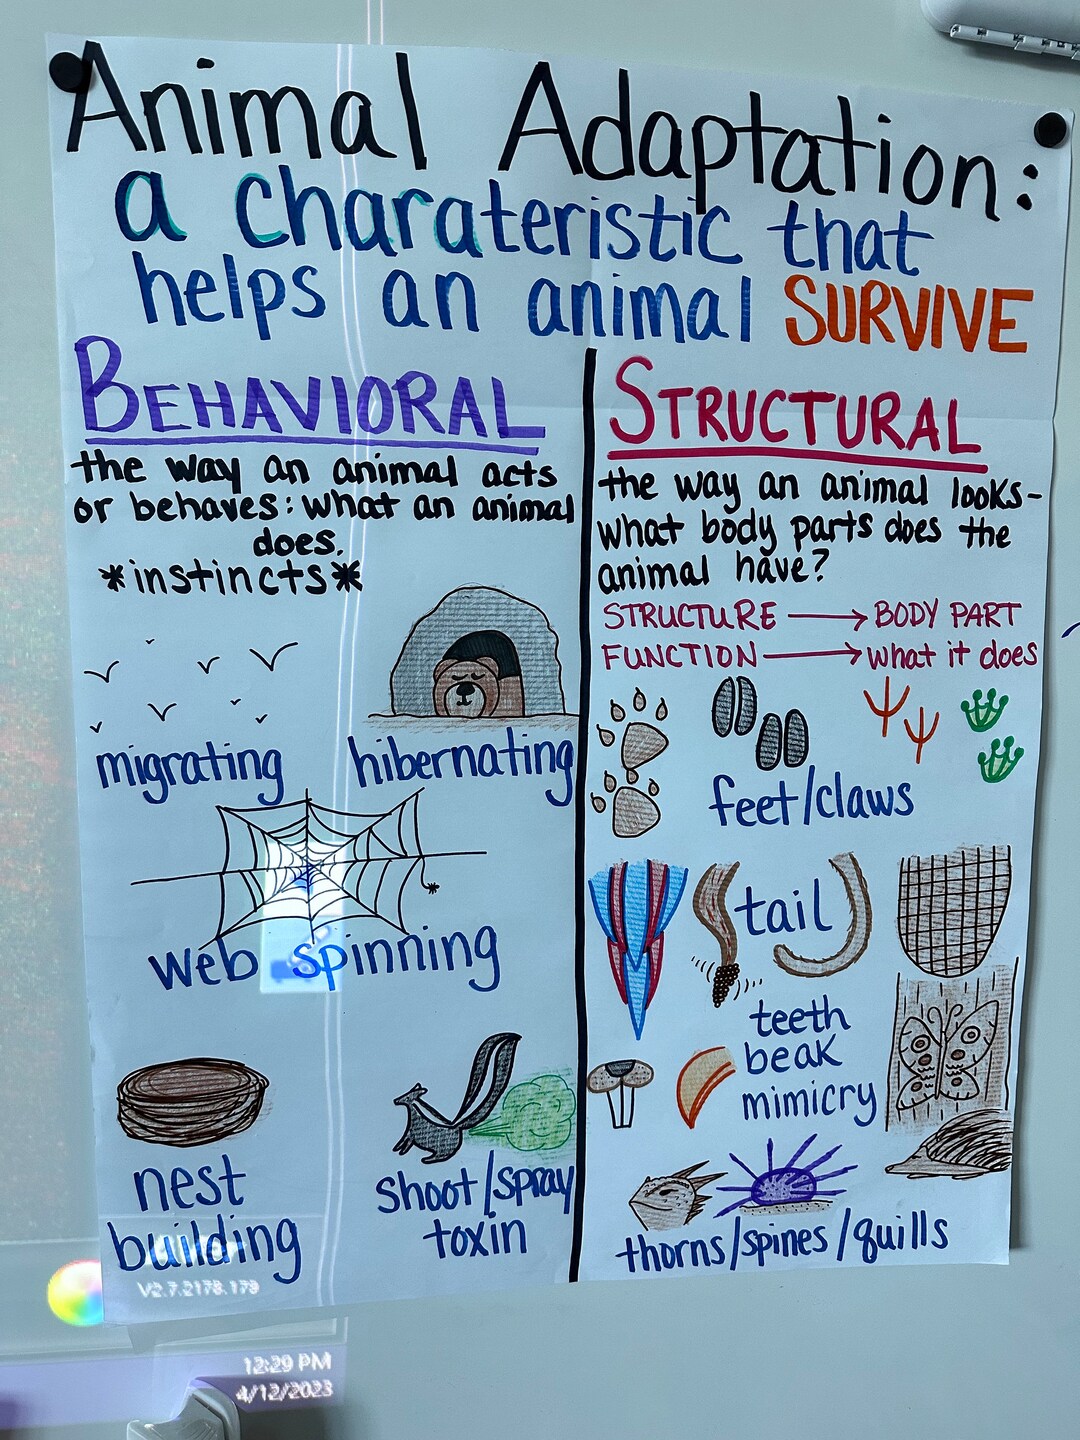 Animal Adaptation:
a charateristic that
helps an animal SURVIVE
BEHAVIORAL
the way an animal acts
or behaves: what an animal
does.
*instincts*
migrating
hibernating
web spinning
nest
building
shoot/spray
toxin
STRUCTURAL
the way an animal looks-
what body parts does the
animal have?
STRUCTURE → BODY PART
FUNCTION → what it does
feet/claws
tail
teeth
beak
mimicry
thorns/spines/quills
V2.7.2178.179
12:29 PM
4/12/2023